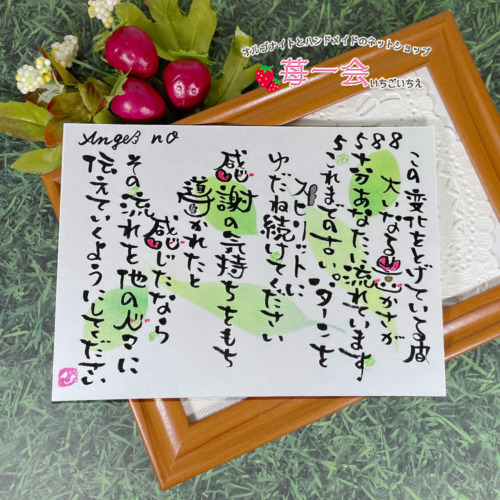 オルゴナイトとハンドメイドのネットショップ
苺一会
いちごいちえ
Angel no
5588
この変化をとげている
大いなる かさが
あなたに流れています
これまでの古いパターンを
スピリットに
ゆだね続けてください
感謝の気持ちをもち
導かれたと
感じたなら
その流れを他の人々に
伝えていくようにしてください